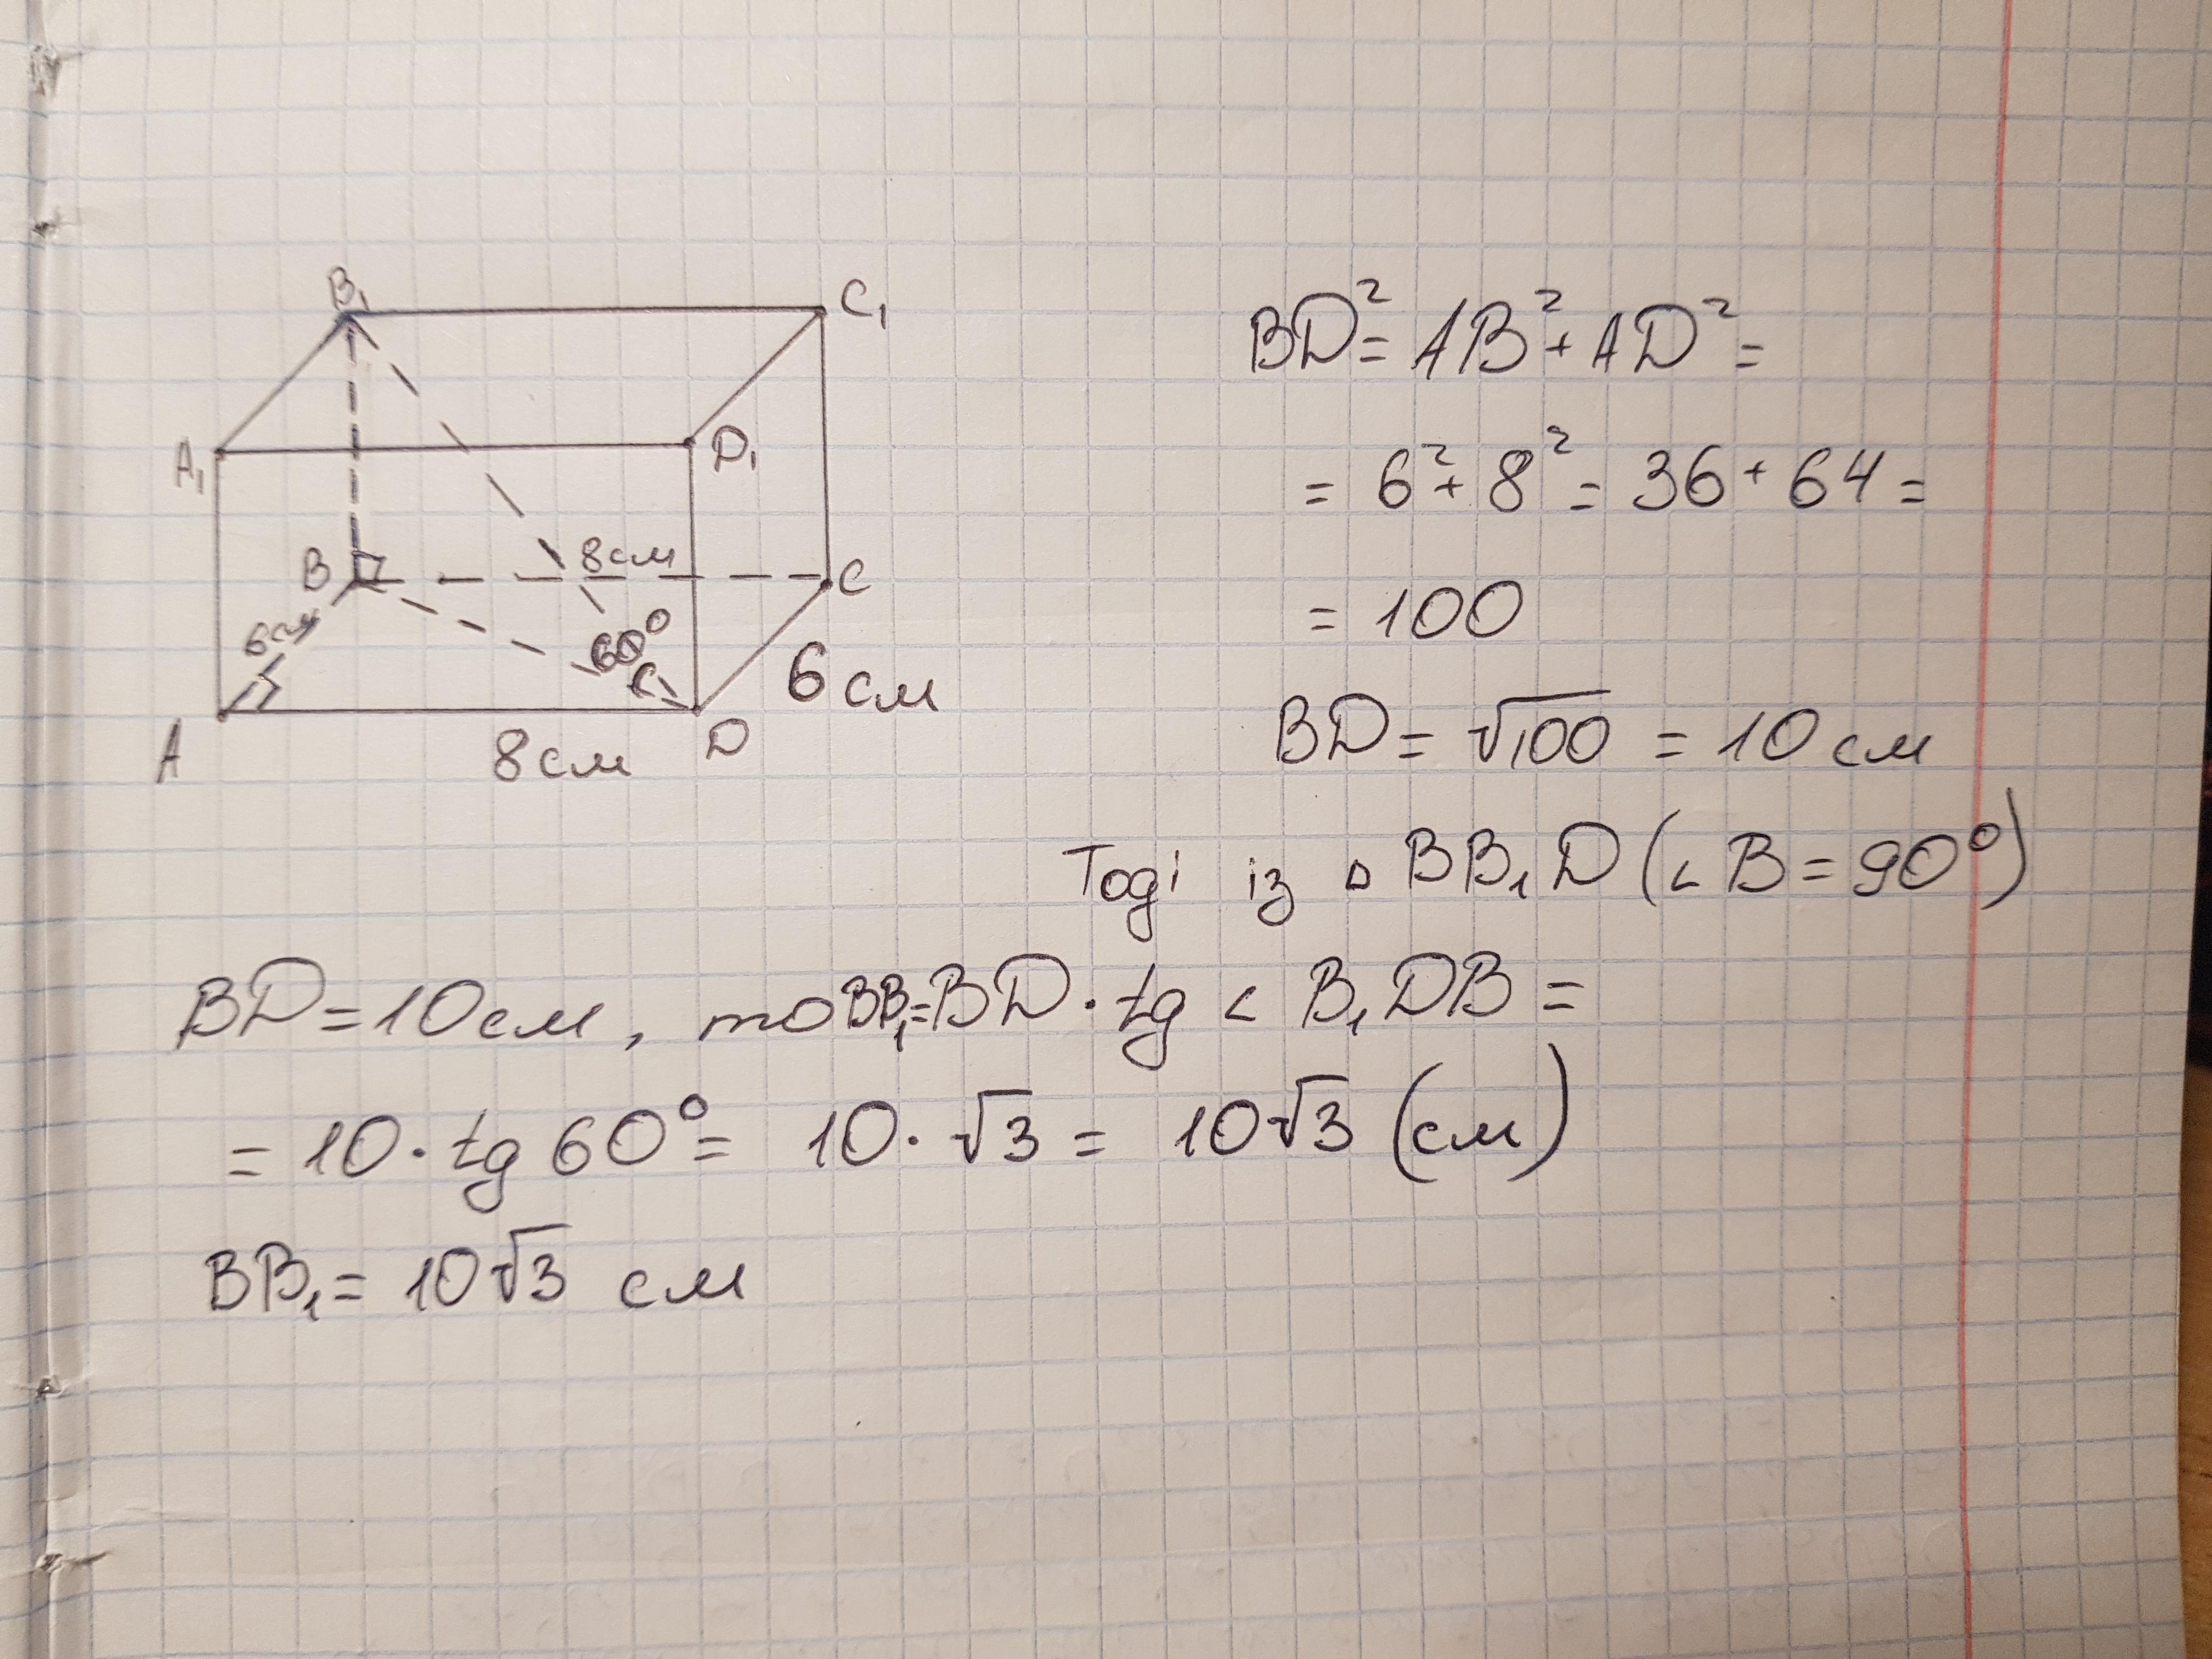 B₁
C₁
A₁
D₁
B
8см
C
6см
60°
6 см
A
8см
D
BD² = AB² + AD² =
= 6² + 8² = 36 + 64 =
= 100
BD = √100 = 10 см
Тоді із △ BB₁D (∠ B = 90°)
BD = 10 см, то BB₁ = BD · tg ∠ B₁DB =
= 10 · tg 60° = 10 · √3 = 10√3 (см)
BB₁ = 10√3 см